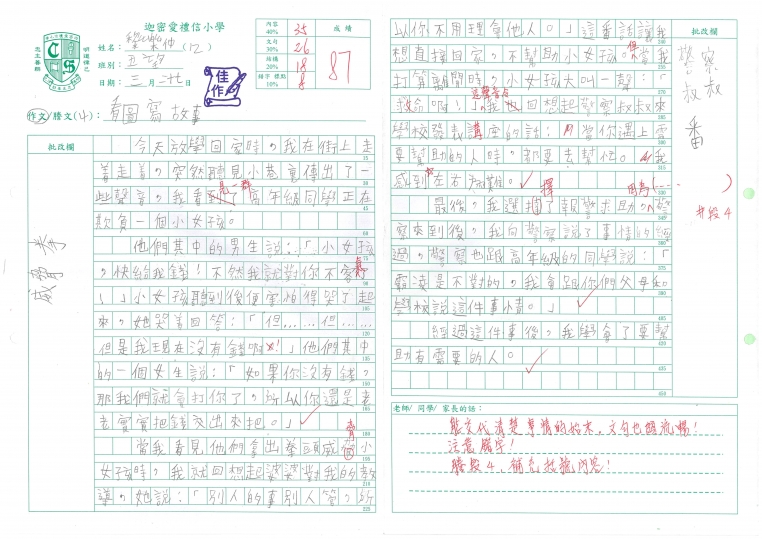 迦密愛禮信小學
明道律己
忠主善群
姓名：
班別：
日期：三月二十九日
作文/謄文(4)：看圖寫故事
佳作
內容 40% 35
文句 30% 26
結構 20% 18
錯字 標點 10% 8
成績
87
批改欄
今天放學回家時，我在街上走
着走着，突然聽見小巷裏傳出了一
些聲音，我看見一群高年級同學正在
欺負一個小女孩。
他們其中的男生說：「小女孩
，快給我錢！不然我就對你不客氣
！」小女孩聽到後便害怕得哭了起
來，她哭着回答：「但……但……
但是我現在沒有錢啊！」他們其中
的一個女生說：「如果你沒有錢，
那我們就會打你了，所以你還是老
老實實把錢交出來把。」
當我看見他們拿出拳頭威脅小
女孩時，我就回想起婆婆對我的教
導，她說：「別人的事別人管，所
拳
脅
威
批改欄
以你不用理會他人。」這番話讓我
想直接回家，不幫助小女孩。但當我
打算離開時，小女孩大叫一聲：「
救命啊！」我回想起警察叔叔來
學校發表講座的話：「當你遇上需
要幫助的人時，都要去幫忙。」我
感到左右為難。
最後，我選擇了報警求助。警
察來到後，我向警察說了事情的經
過，警察也跟高年級的同學說：「
霸凌是不對的，我會跟你們父母和
學校說這件事情。」
經過這件事後，我學會了要幫
助有需要的人。
警察
叔叔
番
因為(……)
老師/ 同學/ 家長的話：
能交代清楚事情的始末，文句也頗流暢！
注意錯字！
謄段4，補充括號內容！